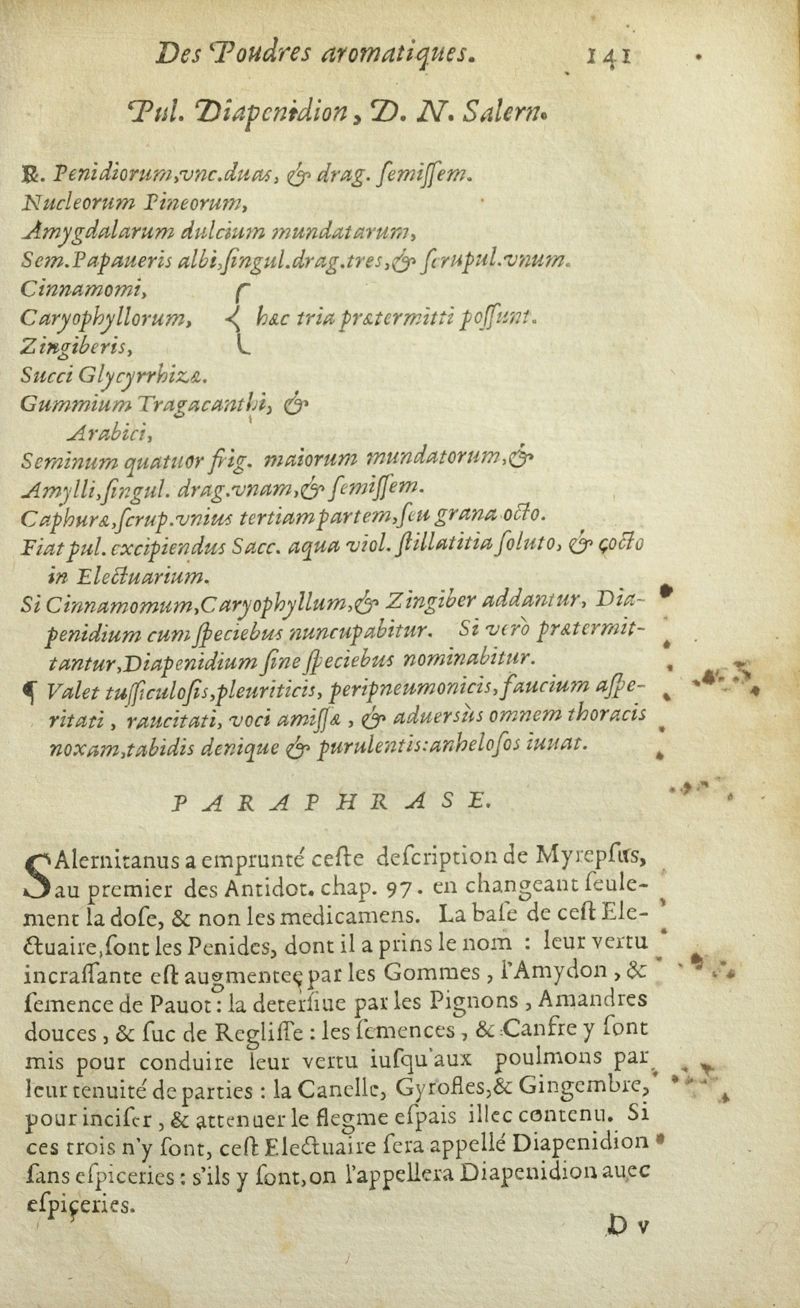 Des Poudres aromatiques. 141
Pul. Diapenidion, D. N. Salern.
℞. Penidiorum,vnc.duas, & drag. ſemiſſem.
Nucleorum Pineorum,
Amygdalarum dulcium mundatarum,
Sem.Papaueris albi,ſingul.drag.tres,& ſcrupul.vnum.
Cinnamomi,
Caryophyllorum, { hæc tria prætermitti poſſunt.
Zingiberis,
Succi Glycyrrhizæ.
Gummium Tragacanthi, &
Arabici,
Seminum quatuor frig. maiorum mundatorum,&
Amylli,ſingul. drag.vnam,& ſemiſſem.
Caphuræ,ſcrup.vnius tertiam partem,ſeu grana octo.
Fiat pul. excipiendus Sacc. aqua viol. ſtillatitia ſoluto, & çocto
in Electuarium.
Si Cinnamomum,Caryophyllum,& Zingiber addantur, Dia-
penidium cum ſpeciebus nuncupabitur. Si verò prætermit-
tantur,Diapenidium ſine ſpeciebus nominabitur.
¶ Valet tuſſiculoſis,pleuriticis, peripneumonicis,faucium aſpe-
ritati, raucitati, voci amiſſæ, & aduersùs omnem thoracis
noxam,tabidis denique & purulentis:anheloſos iuuat.
PARAPHRASE.
SAlernitanus a emprunté ceſte deſcription de Myrepſus,
au premier des Antidot. chap. 97. en changeant ſeule-
ment la doſe, & non les medicamens. La baſe de ceſt Ele-
ctuaire,ſont les Penides, dont il a prins le nom : leur vertu
incraſſante eſt augmenteę par les Gommes, l'Amydon, &
ſemence de Pauot : la deterſiue par les Pignons, Amandres
douces, & ſuc de Regliſſe : les ſemences, & Canfre y ſont
mis pour conduire leur vertu iuſqu'aux poulmons par
leur tenuité de parties : la Canelle, Gyrofles,& Gingembre,
pour inciſer, & attenuer le flegme eſpais illec contenu. Si
ces trois n'y ſont, ceſt Electuaire ſera appellé Diapenidion
ſans eſpiceries : s'ils y ſont,on l'appellera Diapenidion auec
eſpiçeries.
D v